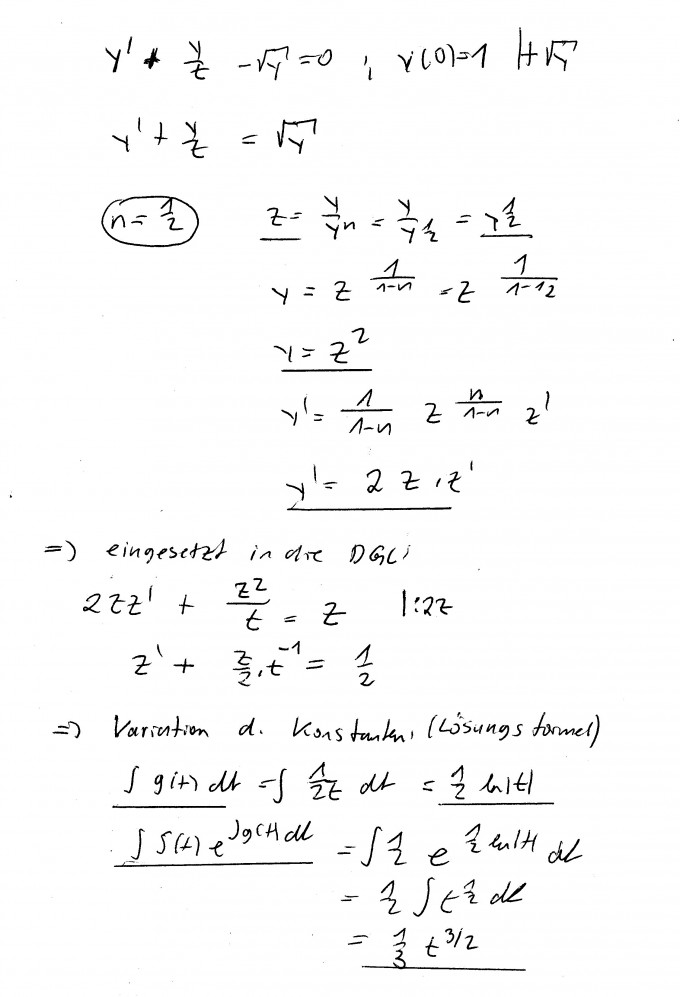 y' + y/t - √y = 0 ; y(0)=1 |+√y
y' + y/t = √y
n = 1/2 z = y/y^n = y/y^1/2 = y^1/2
y = z^(1/(1-n)) = z^(1/(1-1/2))
y = z^2
y' = 1/(1-n) z^(n/(1-n)) z'
y' = 2 z · z'
=> eingesetzt in die DGL:
2zz' + z^2/t = z |:2z
z' + z/2 · t^-1 = 1/2
=> Variation d. Konstanten, (Lösungsformel)
∫ g(t) dt = ∫ 1/2t dt = 1/2 ln|t|
∫ S(t) e^∫g(t)dt = ∫ 1/2 e^(1/2 ln|t|) dt
= 1/2 ∫ t^1/2 dt
= 1/3 t^3/2